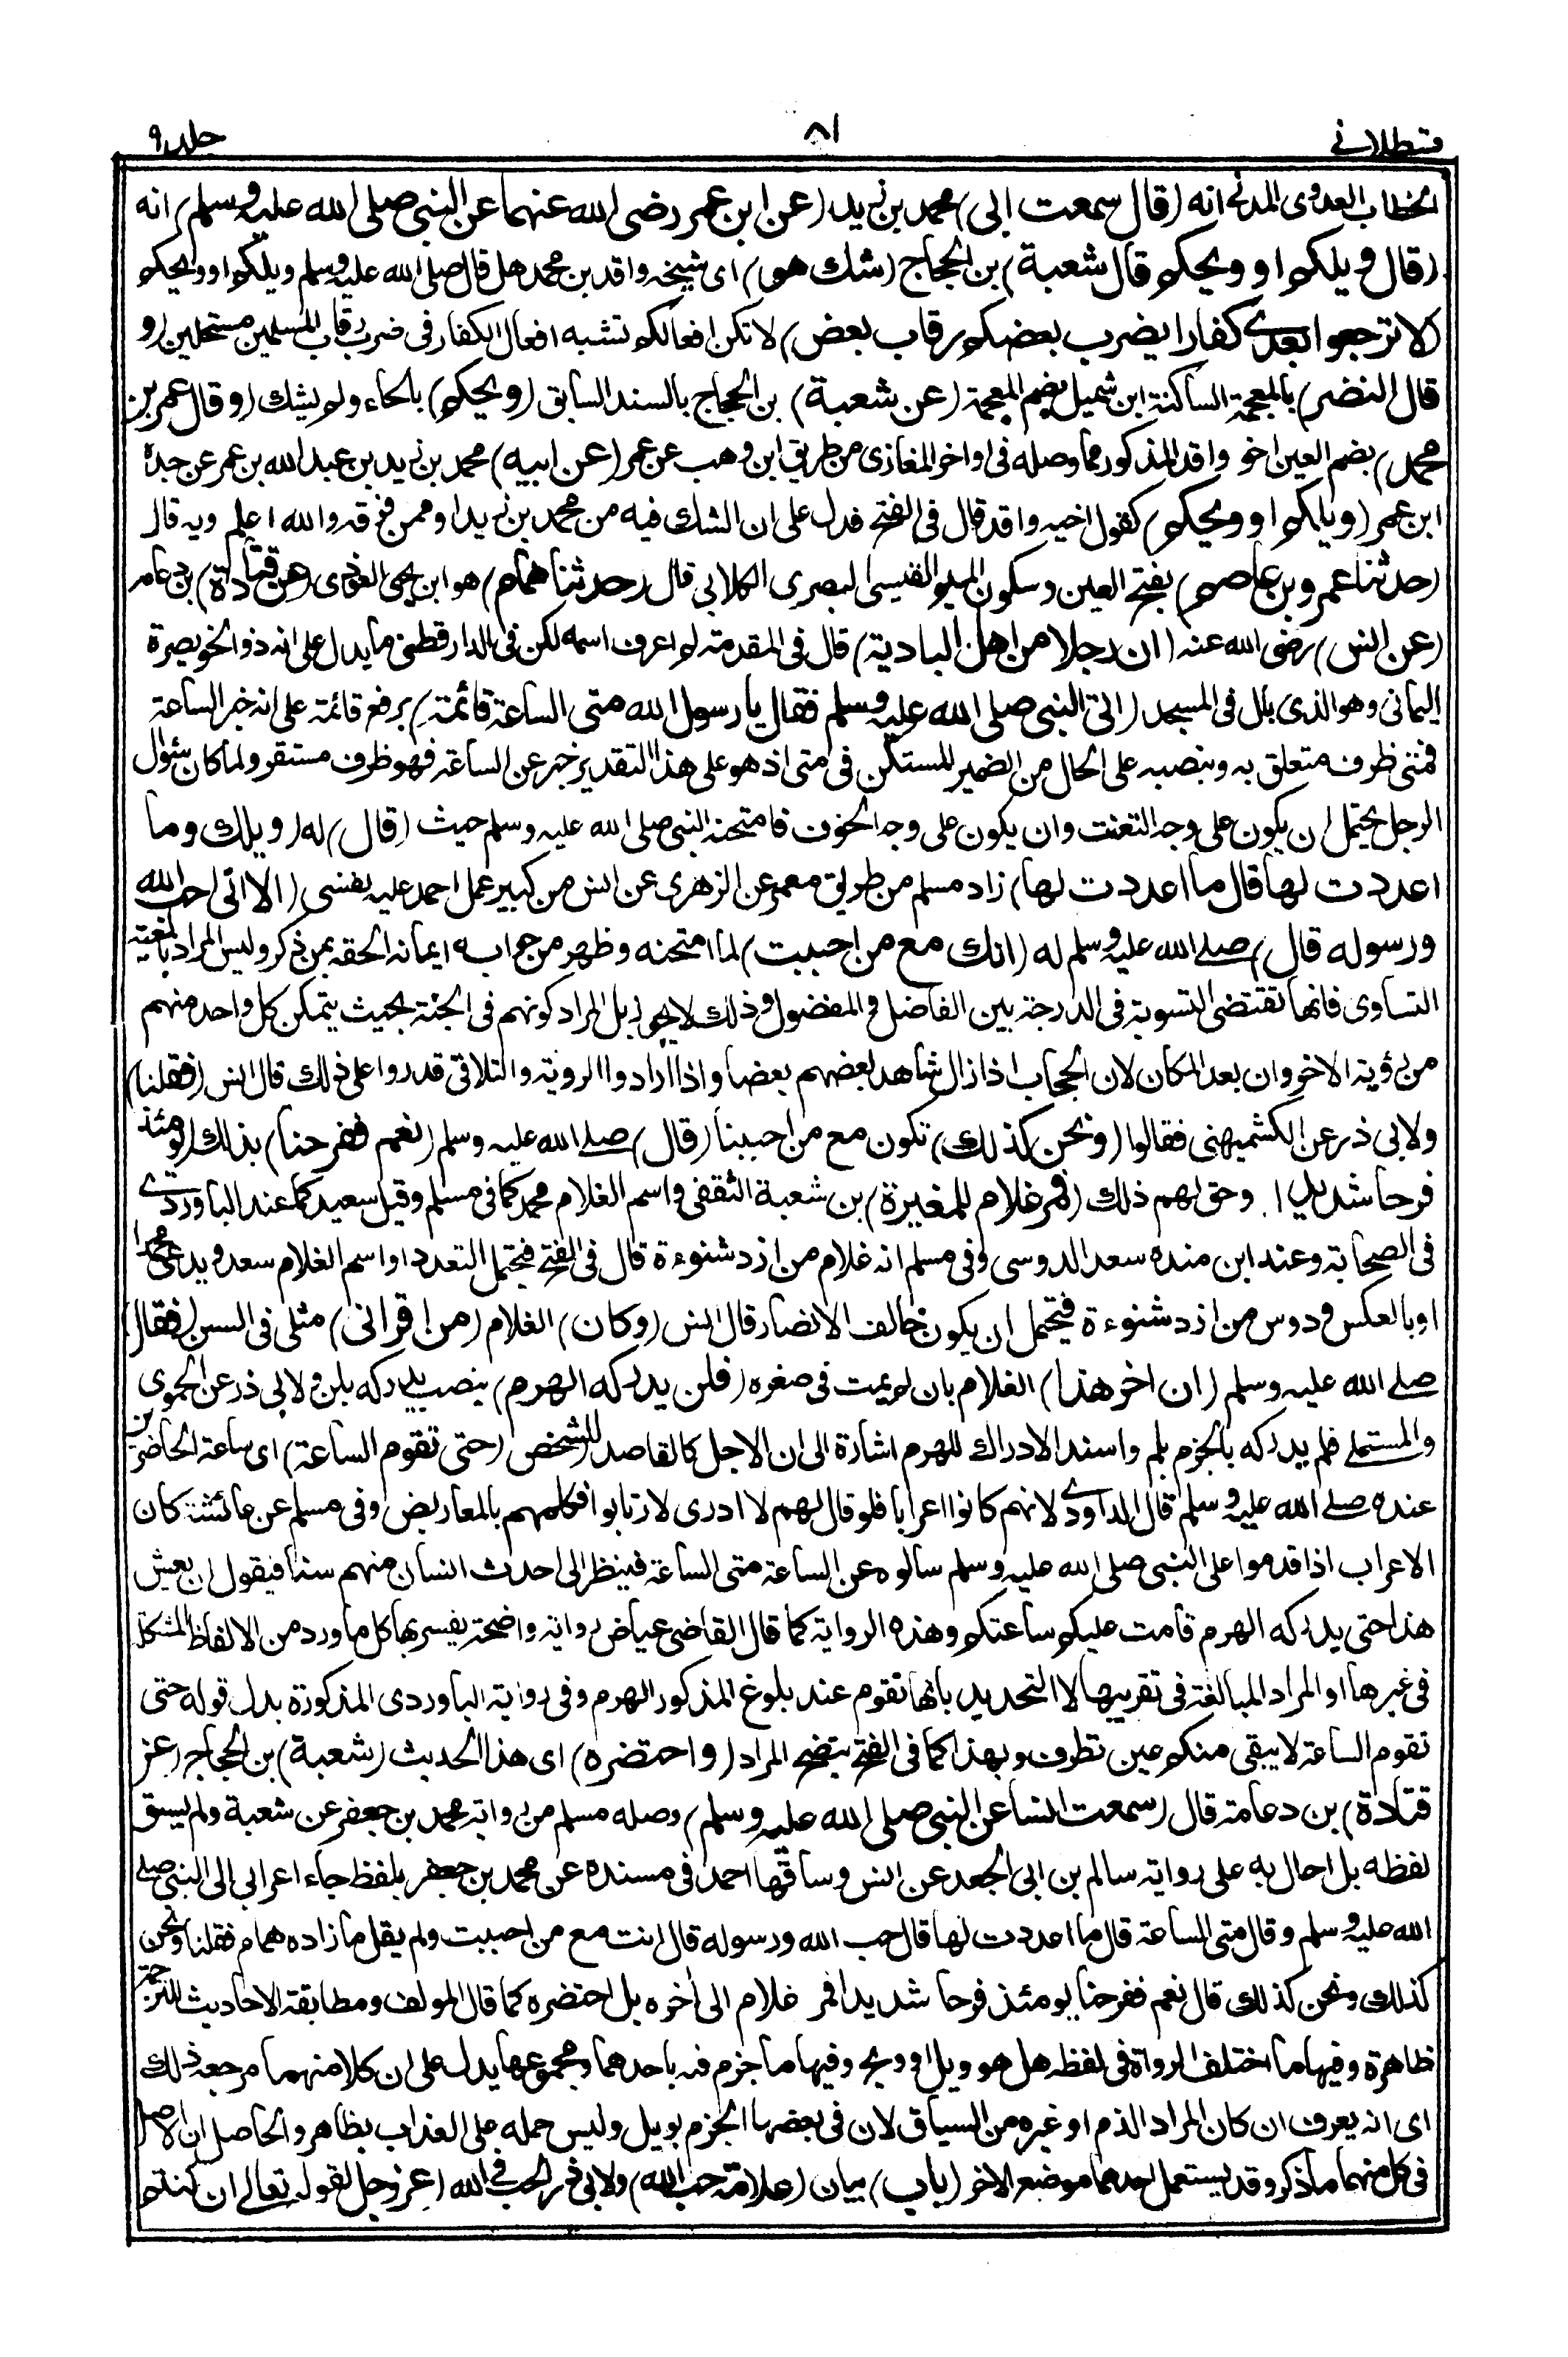 قسطلاني
٨١
جلد ٩
الخطاب العدوى المدنى انه (قال سمعت ابى) محمد بن زيد (عن ابن عمر رضى الله عنهما عن النبى صلى الله عليه وسلم) انه
(قال ويلكم او ويحكم قال شعبة) بن الحجاج (شك هو) اى شيخه واقد بن محمد هل قال صلى الله عليه وسلم ويلكم او ويحكم
(لا ترجعوا بعدى كفارا يضرب بعضكم رقاب بعض) لا تكن افعالكم تشبه افعال الكفار فى ضرب رقاب المسلمين مستحلين (و
قال النضر) بالمعجمة الساكنة ابن شميل بضم المعجمة (عن شعبة) بن الحجاج بالسند السابق (ويحكم) بالحاء ولم يشك (وقال عمر بن
محمد) بضم العين اخو واقد المذكور مما وصله فى اواخر المغازى من طريق ابن وهب عن عمر (عن ابيه) محمد بن زيد بن عبد الله بن عمر عن جده
ابن عمر (ويلكم او ويحكم) كقول اخيه واقد قال فى الفتح فدل على ان الشك فيه من محمد بن زيد او ممن فوقه والله اعلم وبه قال
(حدثنا عمرو بن عاصم) بفتح العين وسكون الميم القيسى البصرى الكلابى قال (حدثنا همام) هو ابن يحيى العوذى (عن قتادة) بن دعامة
(عن انس) رضى الله عنه (ان رجلا من اهل البادية) قال فى المقدمة لم اعرف اسمه لكن فى الدارقطنى ما يدل على انه ذو الخويصرة
اليمانى وهو الذى بال فى المسجد (اتى النبى صلى الله عليه وسلم فقال يا رسول الله متى الساعة قائمة) برفع قائمة على انه خبر الساعة
فمتى ظرف متعلق به وبنصبه على الحال من الضمير المستكن فى متى اذ هو على هذا التقدير خبر عن الساعة فهو ظرف مستقر ولما كان سؤال
الرجل يحتمل ان يكون على وجه التعنت وان يكون على وجه الخوف فامتحنه النبى صلى الله عليه وسلم حيث (قال) له (ويلك وما
اعددت لها قال ما اعددت لها) زاد مسلم من طريق معمر عن الزهرى عن انس من كبير عمل احمد عليه نفسى (الا انى احب الله
ورسوله قال) صلى الله عليه وسلم له (انك مع من احببت) لما امتحنه وظهر من جوابه ايمانه الحقه بمن ذكر وليس المراد بالمعية
التساوى فانها تقتضى التسوية فى الدرجة بين الفاضل والمفضول وذلك لا يجوز بل المراد كونهم فى الجنة بحيث يتمكن كل واحد منهم
من رؤية الاخر وان بعد المكان لان الحجاب اذا زال شاهد بعضهم بعضا واذا ارادوا الروية والتلاقى قدروا على ذلك قال انس (فقلنا)
ولابى ذر عن الكشميهنى فقالوا (ونحن كذلك) نكون مع من احببنا (قال) صلى الله عليه وسلم (نعم ففرحنا) بذلك (يومئذ
فرحا شديدا) وحق لهم ذلك (فمر غلام للمغيرة) بن شعبة الثقفى واسم الغلام محمد كما فى مسلم وقيل سعيد كما عند الباوردى
فى الصحابة وعند ابن منده سعد الدوسى وفى مسلم انه غلام من ازد شنوءة قال فى الفتح فيحتمل التعدد او اسم الغلام سعد ويدعى محمدا
او بالعكس ودوس من ازد شنوءة فيحتمل ان يكون حالف الانصار قال انس (وكان) الغلام (من اقرانى) مثلى فى السن (فقال)
صلى الله عليه وسلم (ان اخر هذا) الغلام بان لم يمت فى صغره (فلن يدركه الهرم) بنصب يدركه بلن ولابى ذر عن الحموى
والمستملى فلم يدركه بالجزم بلم واسند الادراك للهرم اشارة الى ان الاجل كالقاصد للشخص (حتى تقوم الساعة) اى ساعة الحاضرين
عنده صلى الله عليه وسلم قال الداودى لانهم كانوا اعرابا فلو قال لهم لا ادرى لارتابوا فكلمهم بالمعاريض وفى مسلم عن عائشة كان
الاعراب اذا قدموا على النبى صلى الله عليه وسلم سالوه عن الساعة متى الساعة فينظر الى احدث انسان منهم سنا فيقول ان يعش
هذا حتى يدركه الهرم قامت عليكم ساعتكم وهذه الرواية كما قال القاضى عياض رواية واضحة يفسر بها كل ما ورد من الالفاظ المشكلة
فى غيرها او المراد المبالغة فى تقريبها لا التحديد بانها تقوم عند بلوغ المذكور الهرم وفى رواية الباوردى المذكورة بدل قوله حتى
تقوم الساعة لا يبقى منكم عين تطرف وبهذا كما فى الفتح يتضح المراد (واختصره) اى هذا الحديث (شعبة) بن الحجاج (عن
قتادة) بن دعامة قال (سمعت انسا عن النبى صلى الله عليه وسلم) وصله مسلم من رواية محمد بن جعفر عن شعبة ولم يسق
لفظه بل احال به على رواية سالم بن ابى الجعد عن انس وساقها احمد فى مسنده عن محمد بن جعفر بلفظ جاء اعرابى الى النبى صلى
الله عليه وسلم وقال متى الساعة قال ما اعددت لها قال حب الله ورسوله قال انت مع من احببت ولم يقل ما زاده همام فقلنا ونحن
كذلك ونحن كذلك قال نعم ففرحنا يومئذ فرحا شديدا فمر غلام الى اخره بل اختصره كما قال المولف ومطابقة الاحاديث للترجمة
ظاهرة وفيها ما اختلف الرواة فى لفظه هل هو ويل او ويح وفيها ما جزم فيه باحدهما ومجموعها يدل على ان كلا منهما مرجعه ذلك
اى انه يعرف ان كان المراد الذم او غيره من السياق لان فى بعضها الجزم بويل وليس حمله على العذاب بظاهر والحاصل ان الاصل
فى كل منهما ما ذكر وقد يستعمل احدهما موضع الاخر (باب) بيان (علامة حب الله) ولابى ذر الحب فى الله (عز وجل لقوله تعالى ان كنتم